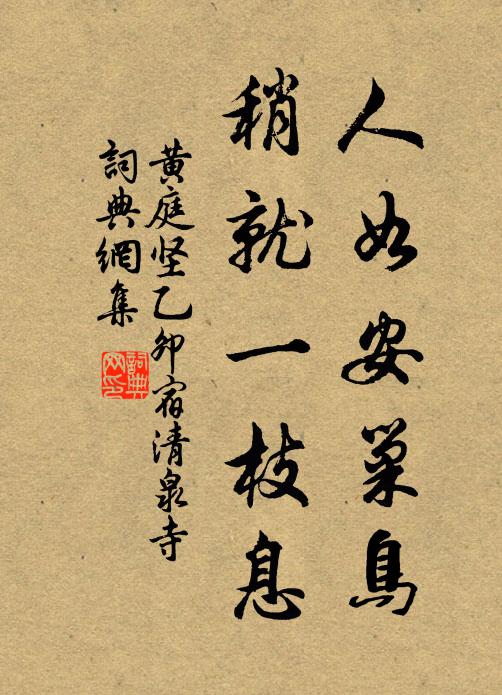 人如安巢鳥
稍就一枝息
黄庭坚乙卯宿清泉寺
詞典網集
詞典網印